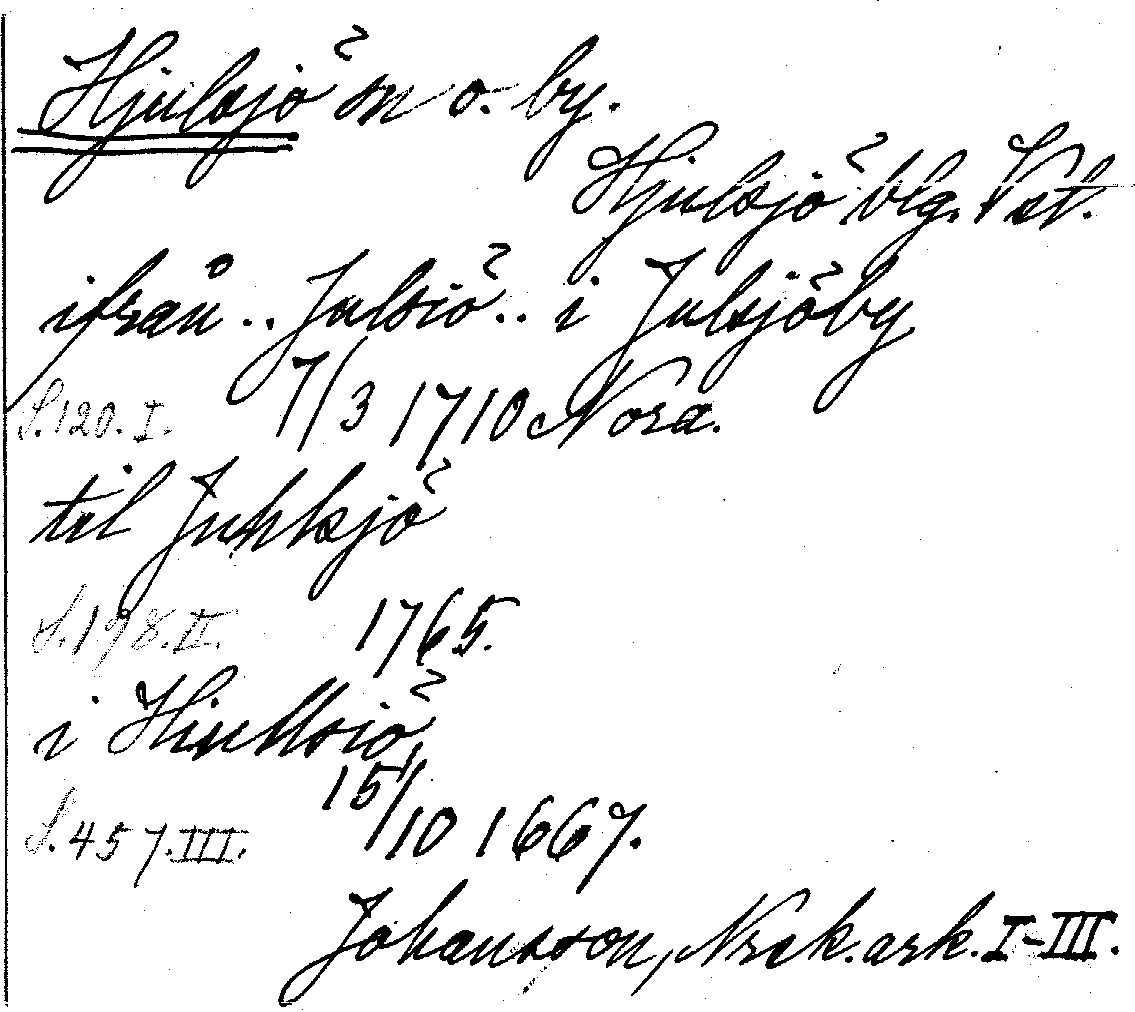 Hjulsjö sn o. by.
Hjulsjö blg. Vstl.
ifrån .. Julsiö .. i Julsjöby
S. 120. I. 7/3 1710 Nora.
til Juhlsjö
S. 198. II. 1765.
i Hiullsiö,
S. 457. III. 15/10 1667.
Johansson, Nrck. ark. I-III.